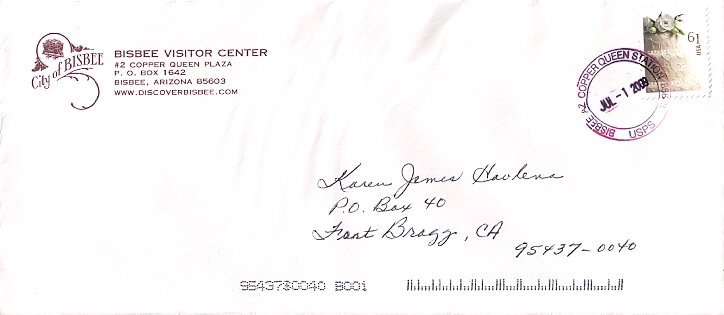 City of BISBEE
BISBEE VISITOR CENTER
#2 COPPER QUEEN PLAZA
P. O. BOX 1642
BISBEE, ARIZONA 85603
WWW.DISCOVERBISBEE.COM
61
USA
BISBEE AZ COPPER QUEEN STATION
JUL -1 2009
USPS
Karen James
P.O. Box 40
Fort Bragg, CA
95437-0040
95437$0040 B001